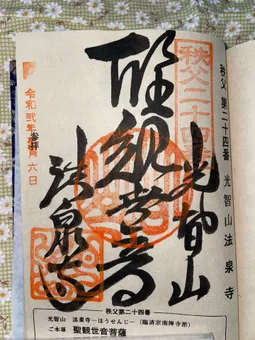 秩父 第二十四番 光智山 法泉寺
秩父二十四
光智山
聖観世音
法泉寺
参拝
令和弐年
月六日
秩父第二十四番
光智山 法泉寺―ほうせんじ―(臨済宗南禅寺派)
ご本尊 聖観世音菩薩